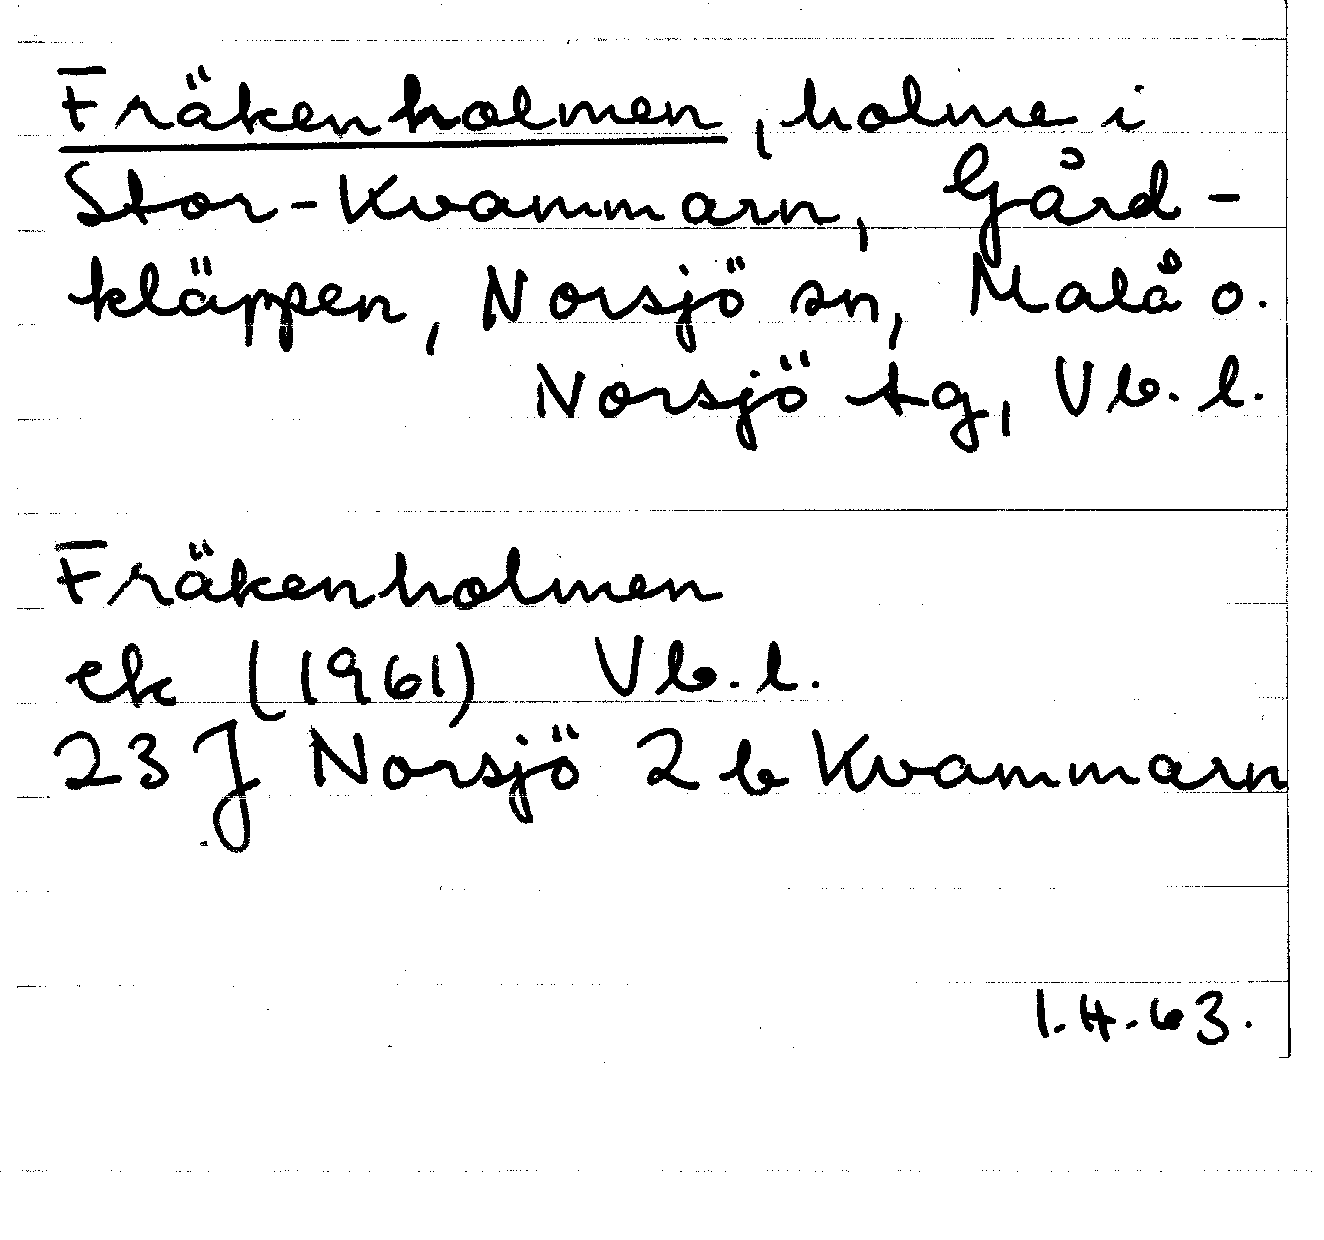 Fräkenholmen, holme i
Stor-Kvammarn, Gård-
kläppen, Norsjö sn, Malå o.
Norsjö tg, Vb. l.
Fräkenholmen
ek (1961) Vb. l.
23 J Norsjö 2 b Kvammarn
1.4.63.